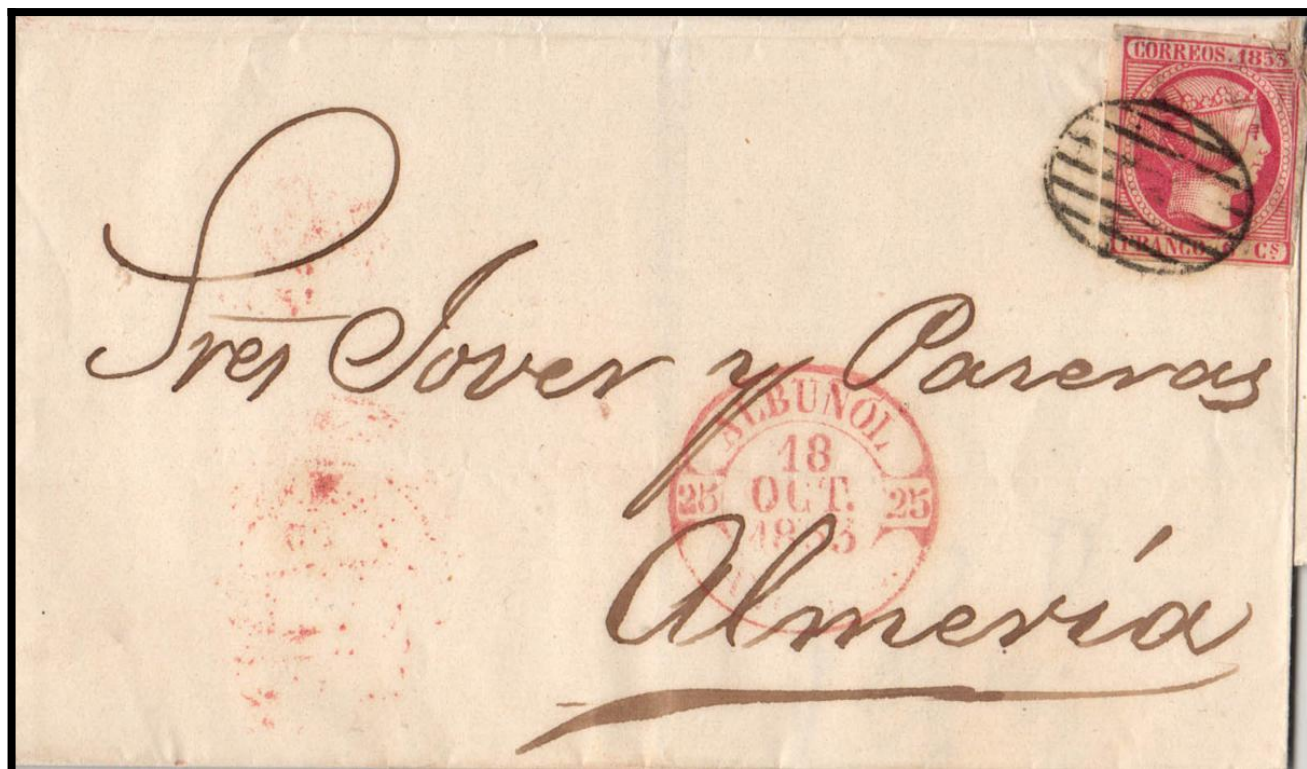 CORREOS. 1853
FRANCO. 6 Cs.
Sres Jover y Pareras
ALBUÑOL
18
25 OCT. 25
1853
Almería